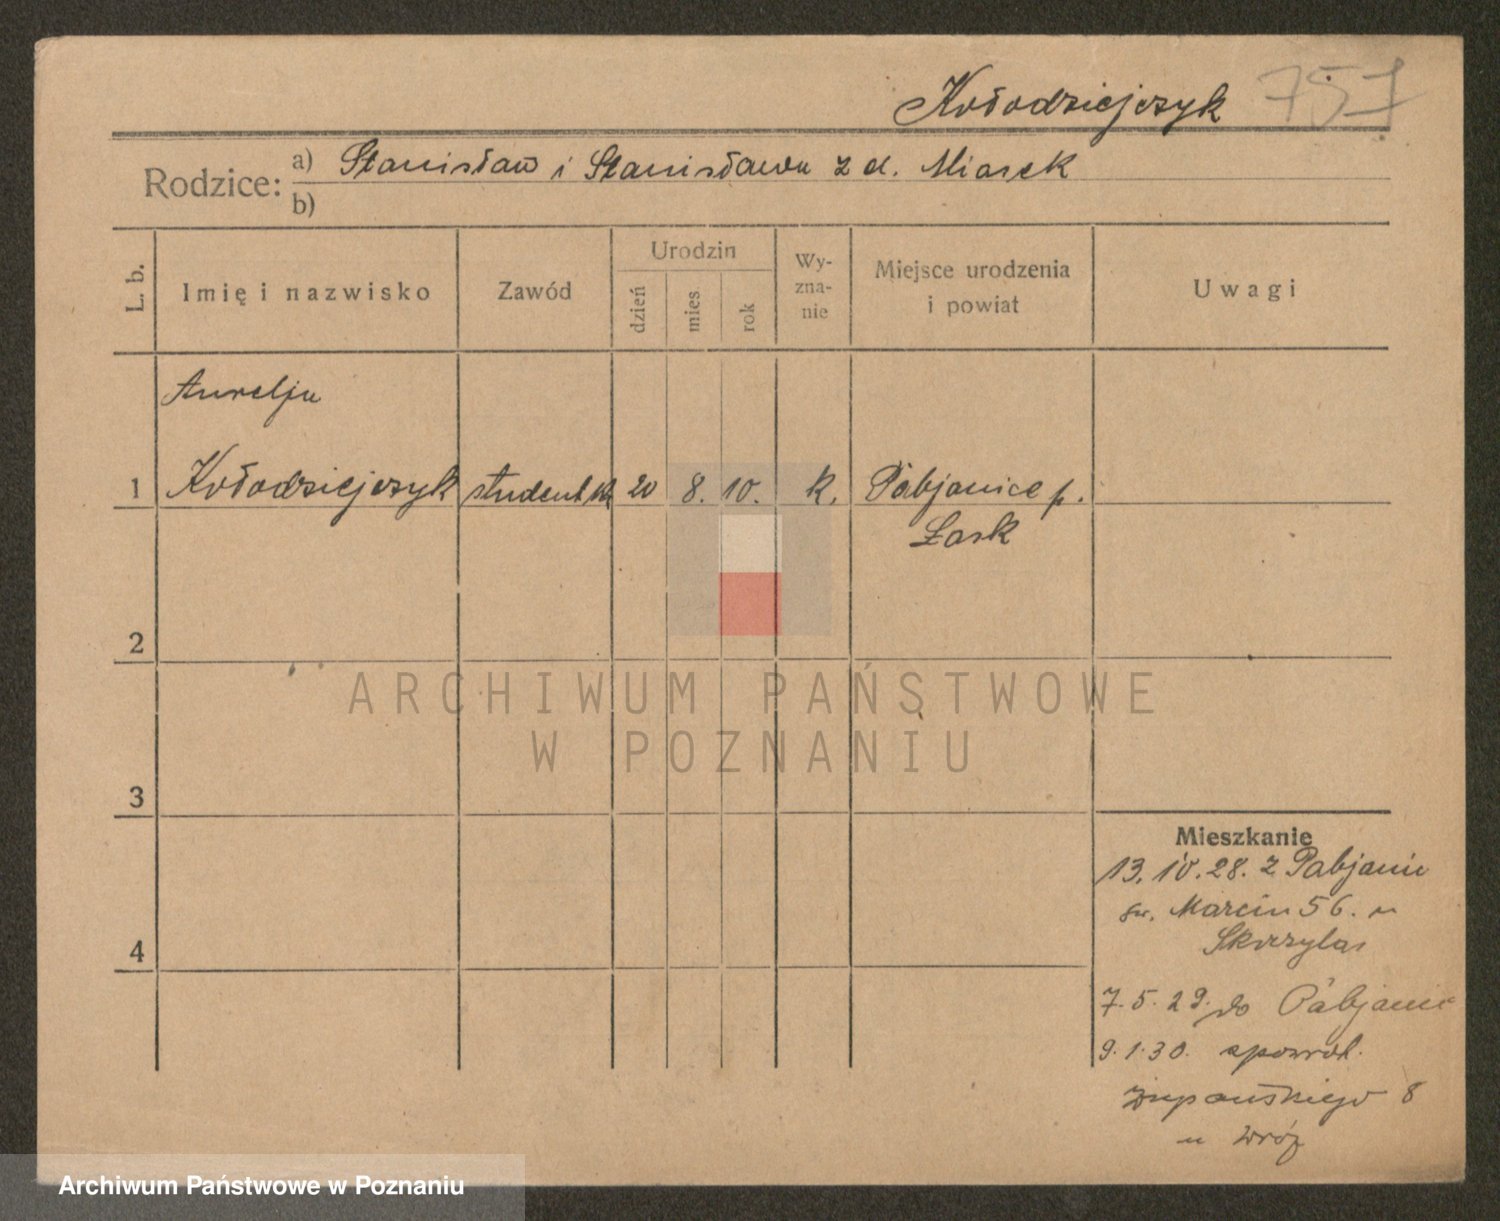 Kołodziejczyk 757
Rodzice: a) Stanisław i Stanisława z d. Miasek
b)
L. b. Imię i nazwisko Zawód Urodzin dzień mies. rok Wy-zna-nie Miejsce urodzenia i powiat Uwagi
Aurelja
1 Kołodziejczyk studentka 20 8. 10. k. Pabjanice p.
Łask
2
ARCHIWUM PAŃSTWOWE
W POZNANIU
3
Mieszkanie
13.10.28. z Pabjanic
św. Marcin 56. u
4
7.5.29. do Pabjanic
9.1.30. spowrot.
8
u
Archiwum Państwowe w Poznaniu